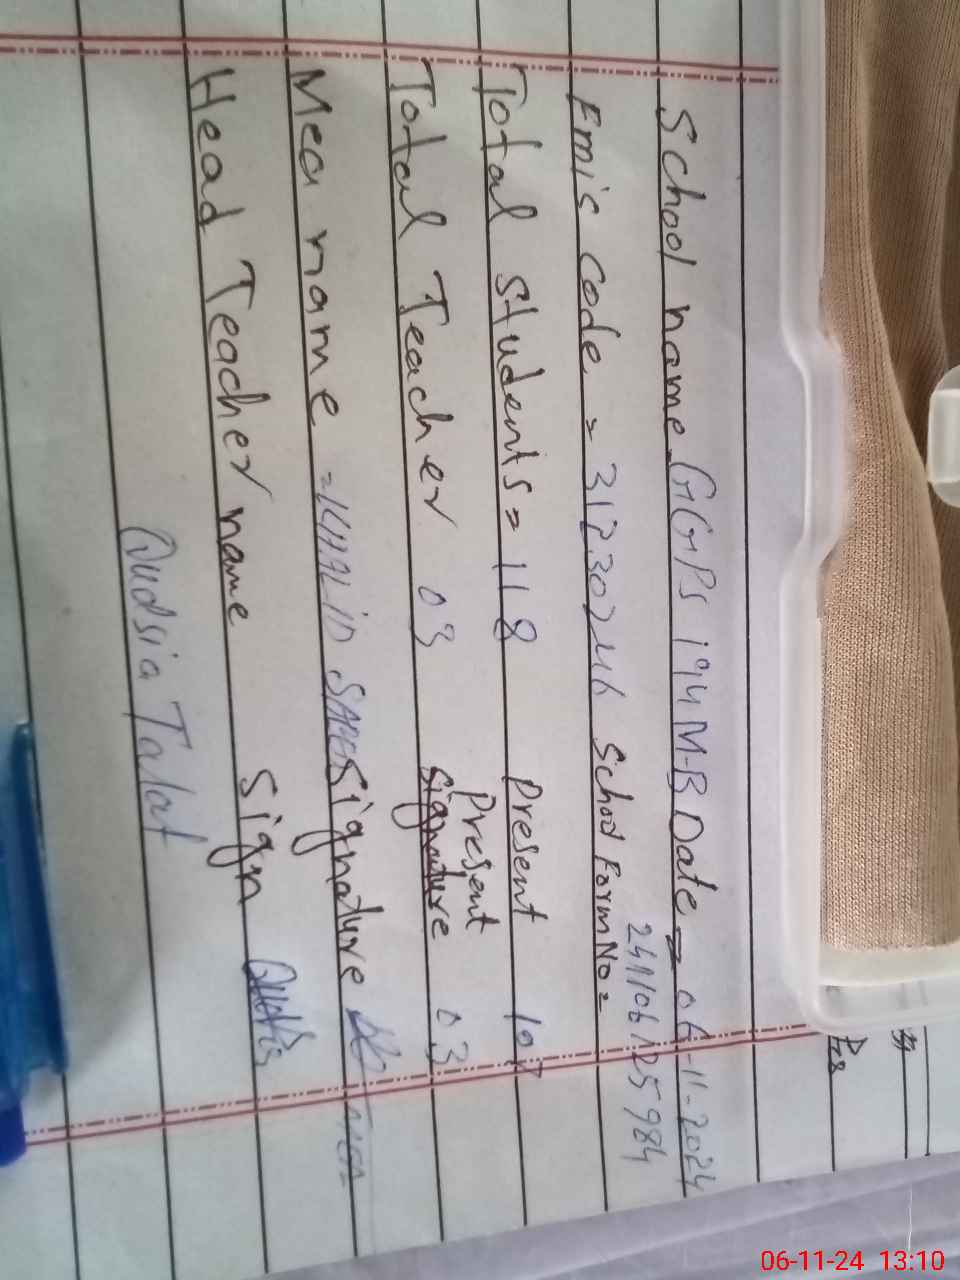 School name GGPS 194 M-B Date = 06-11-2024
Emis code = 31230246 School Form No = 241106125984
Total students = 118 Present 107
Total Teacher 03 Present 03
Mea name = KHALID SAEED Signature
Head Teacher name Sign
Qudsia Talat
06-11-24 13:10